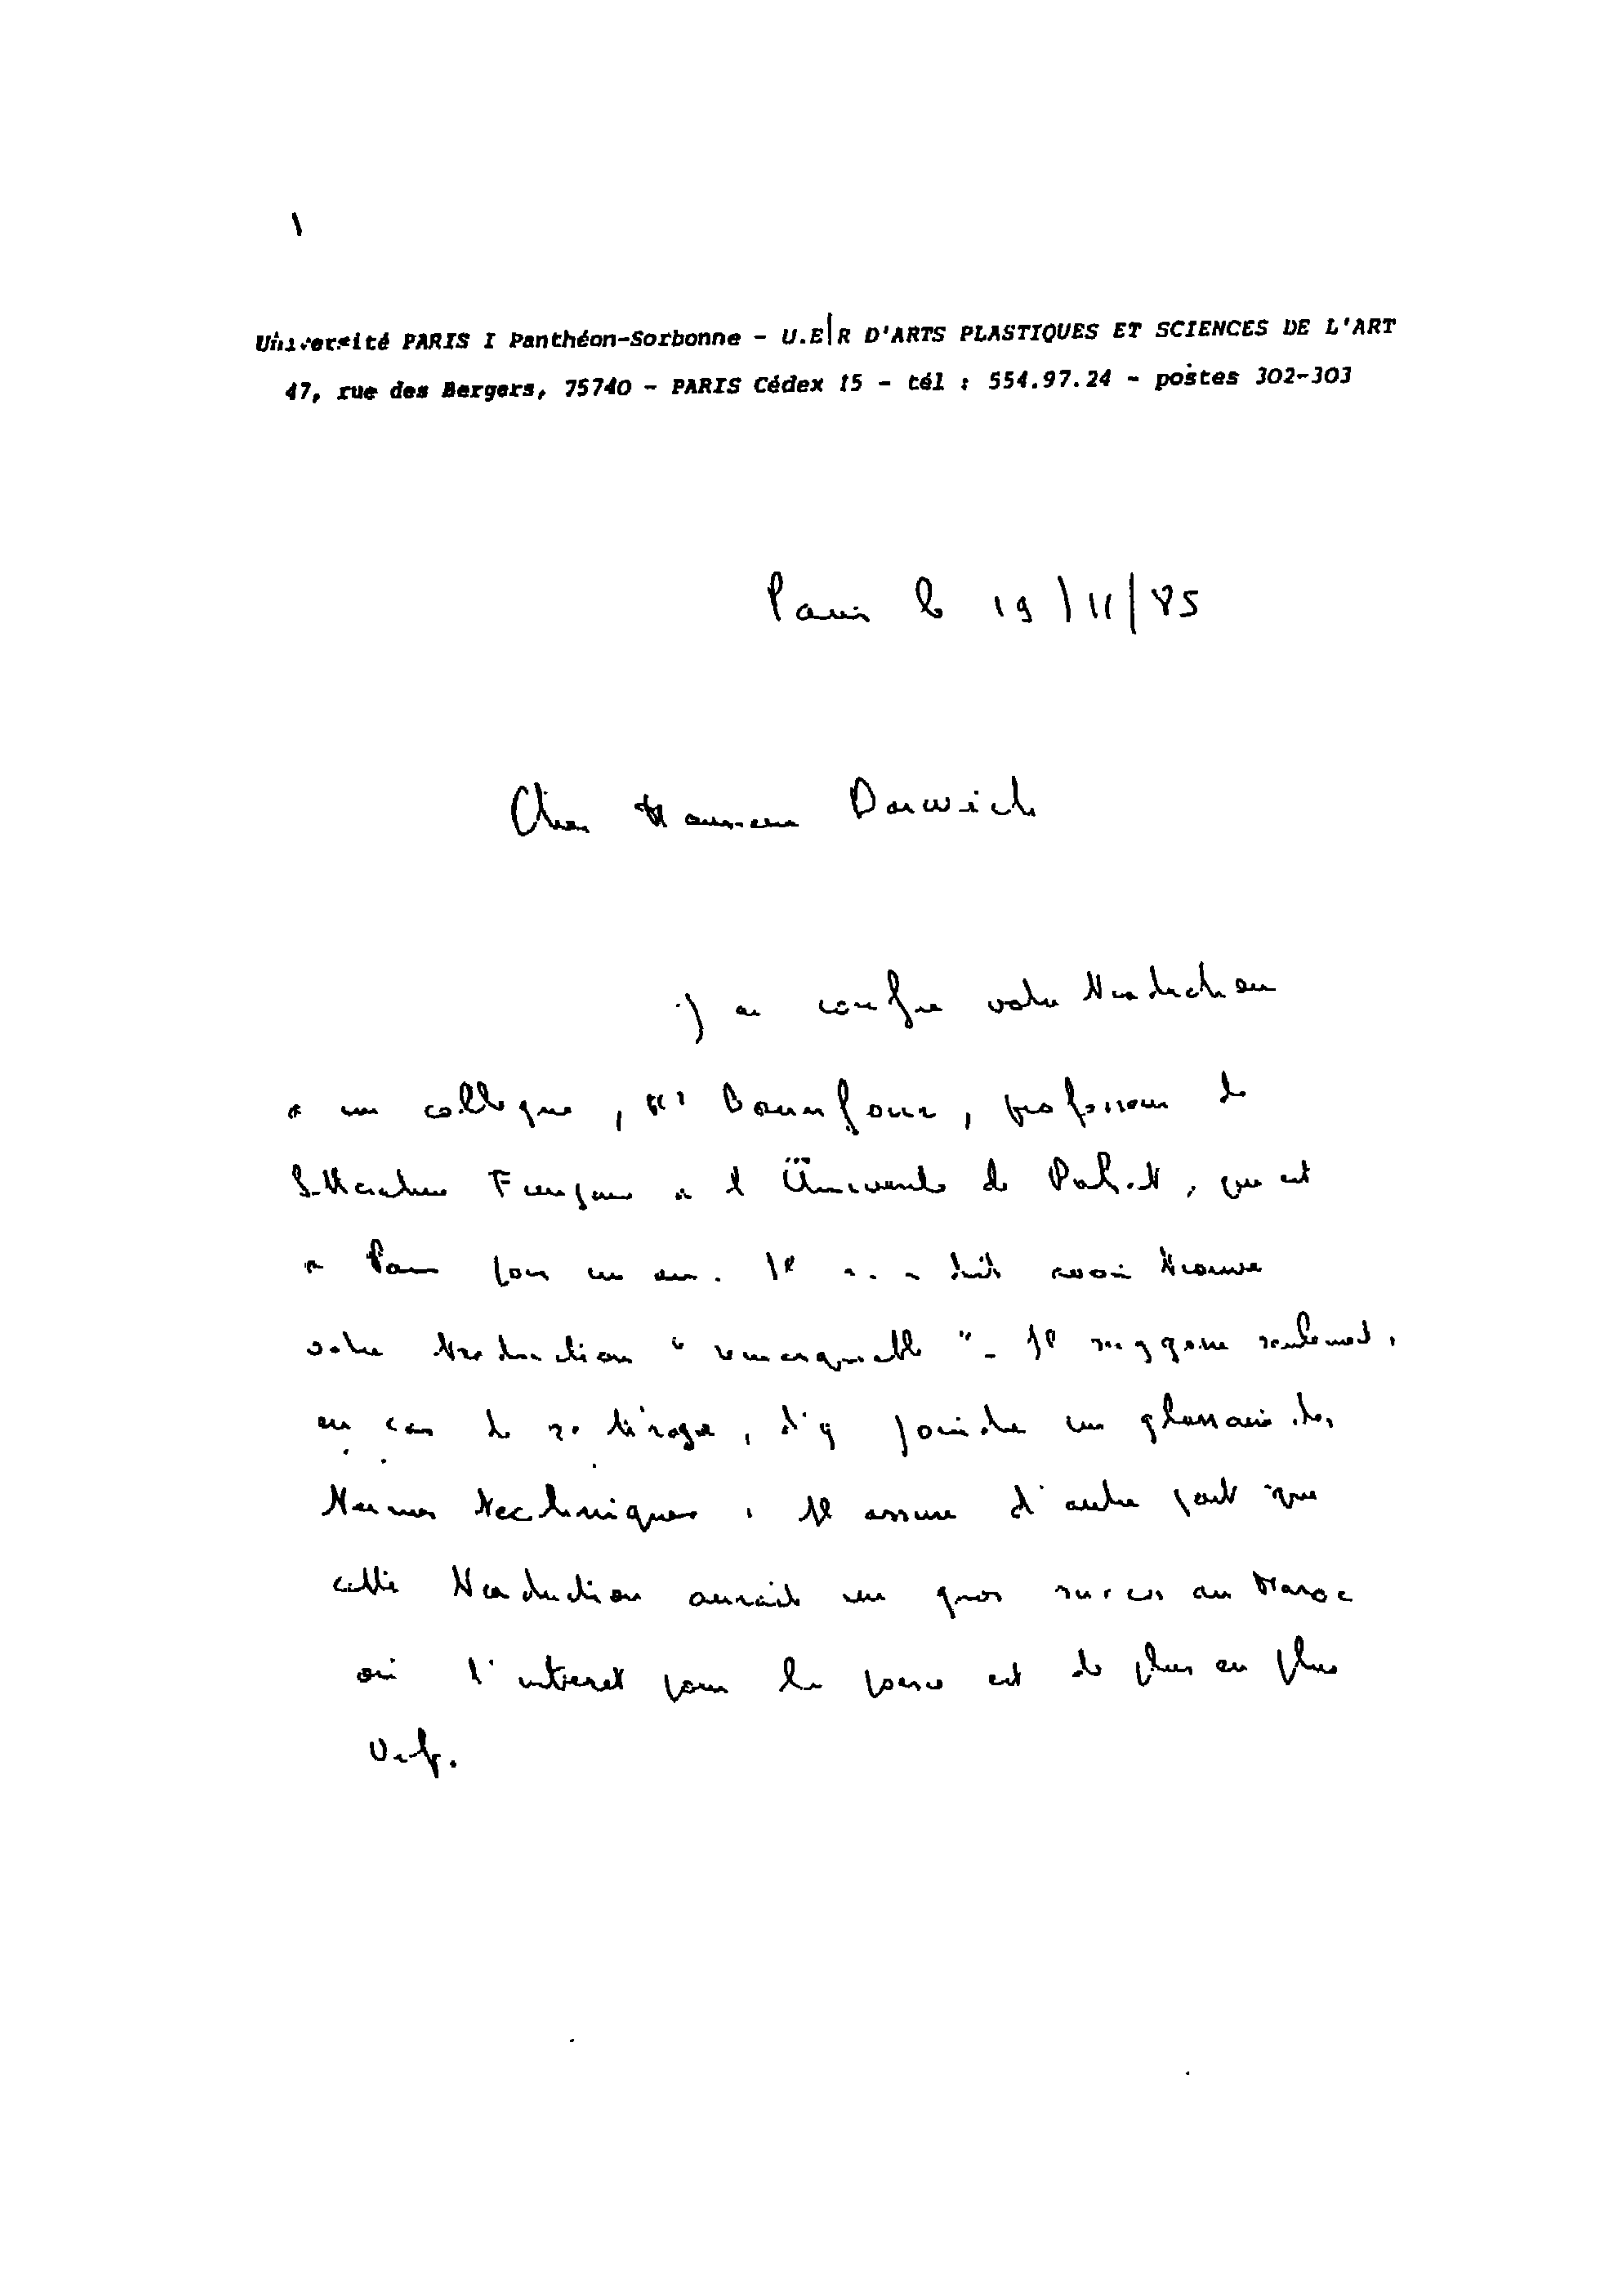 Université PARIS I Panthéon-Sorbonne - U.E R D'ARTS PLASTIQUES ET SCIENCES DE L'ART
47, rue des Bergers, 75740 - PARIS Cédex 15 - tél : 554.97.24 - postes 302-303
Paris le 19/11/85
Cher Monsieur Darwich
j'ai confié votre traduction
à un collègue, Mr Bounfour, professeur de
littérature Française à l'Université de Rabat, qui est
à Paris pour un an. Il m'a dit avoir trouvé
votre traduction "remarquable" - Il suggère seulement,
en cas de retirage, d'y joindre un glossaire des
termes techniques. Il assure d'autre part que
cette traduction aurait un gros succès au Maroc
où l'intérêt pour la est de plus en plus
vif.